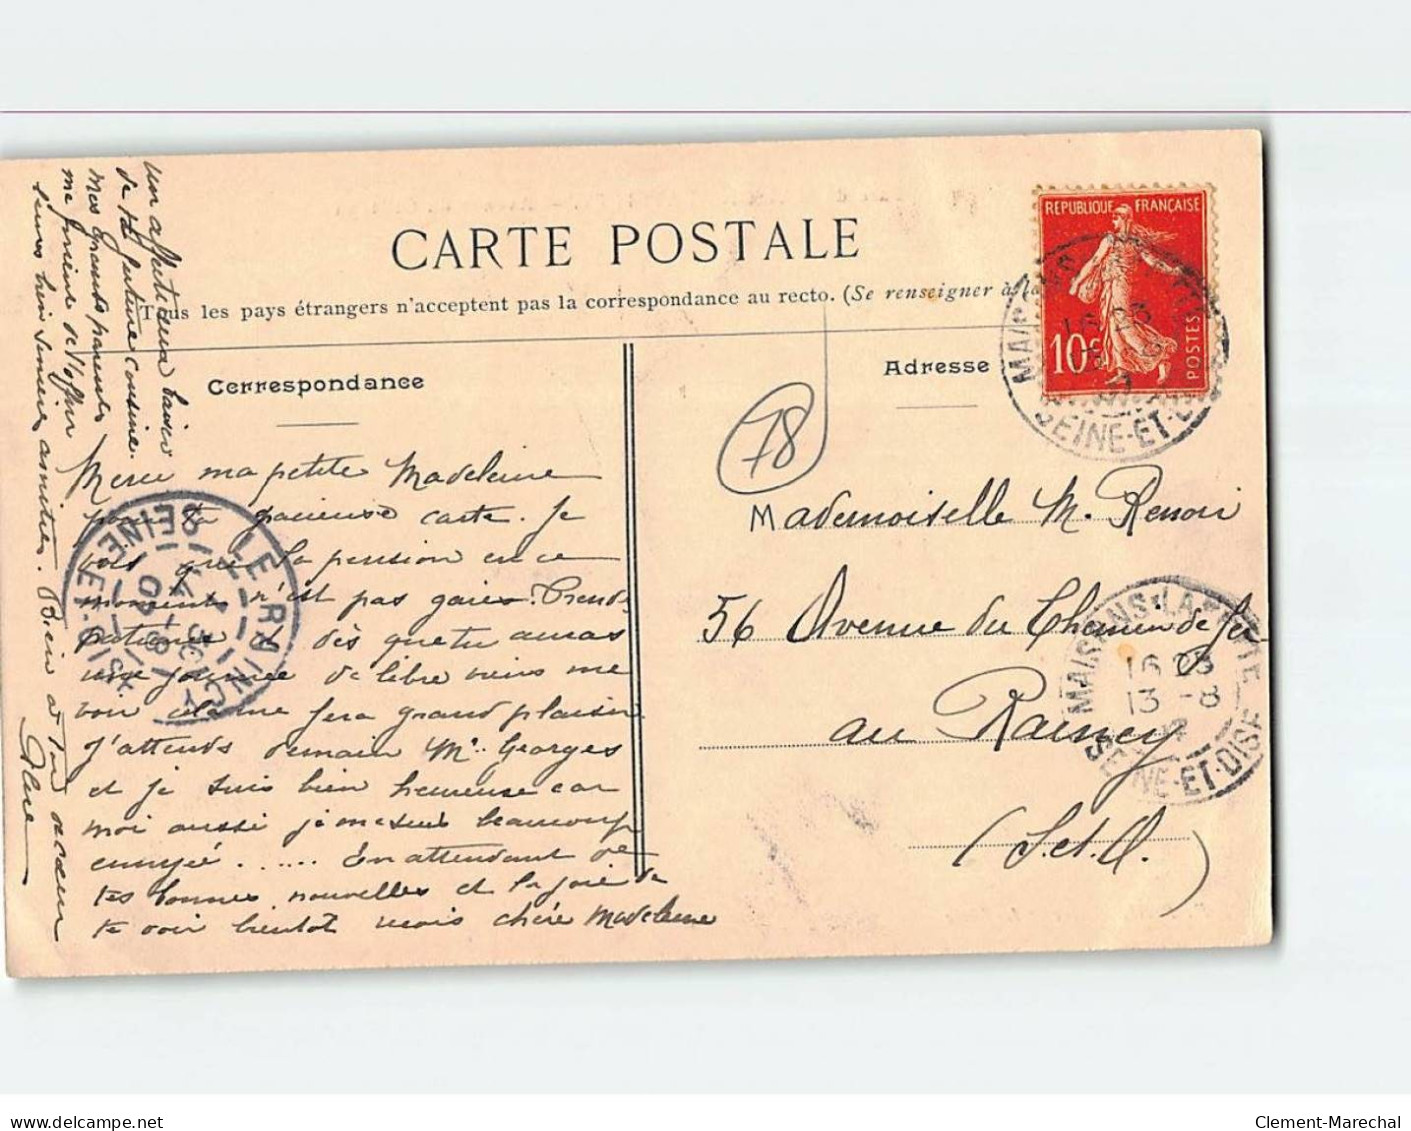 CARTE POSTALE
Tous les pays étrangers n'acceptent pas la correspondance au recto. (Se renseigner à la
Correspondance
Adresse
REPUBLIQUE FRANÇAISE
10c
POSTES
MAISONS-LAFFITTE
SEINE-ET-OISE
78
Merci ma petite Madeleine
pour ta gracieuse carte. Je
vois que la pension en ce
moment n'est pas gaie. Prends
patience et dès que tu auras
une journée de libre viens me
voir cela me fera grand plaisir
J'attends demain Mr. Georges
et je suis bien heureuse car
moi aussi je m'ennuie beaucoup
. . . . . . En attendant de
tes bonnes nouvelles et la joie de
te voir bientôt reçois chère Madeleine
un affectueux baiser
de ta future cousine.
Mes grands parents
me prient de t'offrir
leurs bien sincères amitiés. Bien à toi de cœur
LE RAINCY
SEINE-ET-OISE
Mademoiselle M. Renoir
56 Avenue du Chemin de fer
au Raincy
(S. et O.)
MAISONS-LAFFITTE
16 25
13 -8
SEINE-ET-OISE
Clement-Marechal